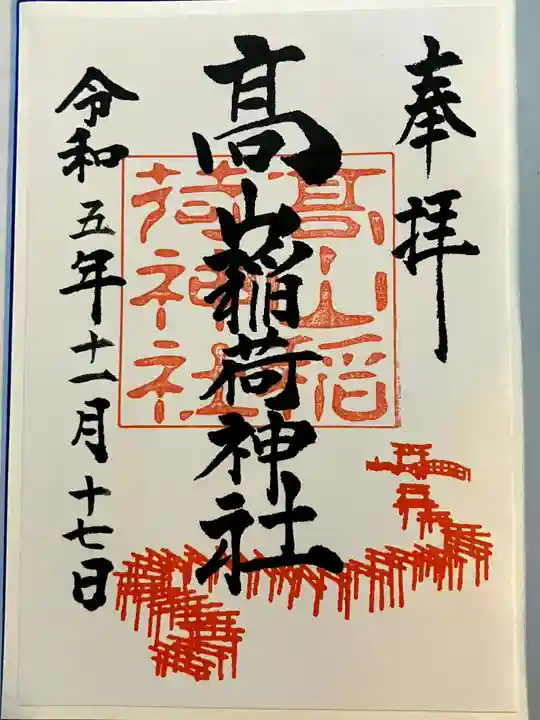 奉拝
高山稲荷神社
髙山稲荷神社
令和五年十一月十七日